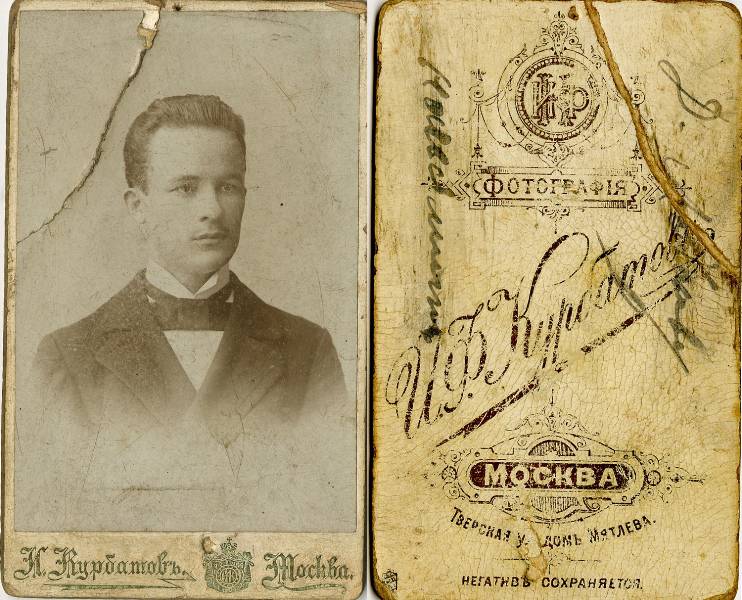 И. Курбатовъ.
Москва.
ФОТОГРАФІЯ
И.Ф. Курбатовъ
МОСКВА
ТВЕРСКАЯ У. ДОМЪ МЯТЛЕВА.
НЕГАТИВЪ СОХРАНЯЕТСЯ.